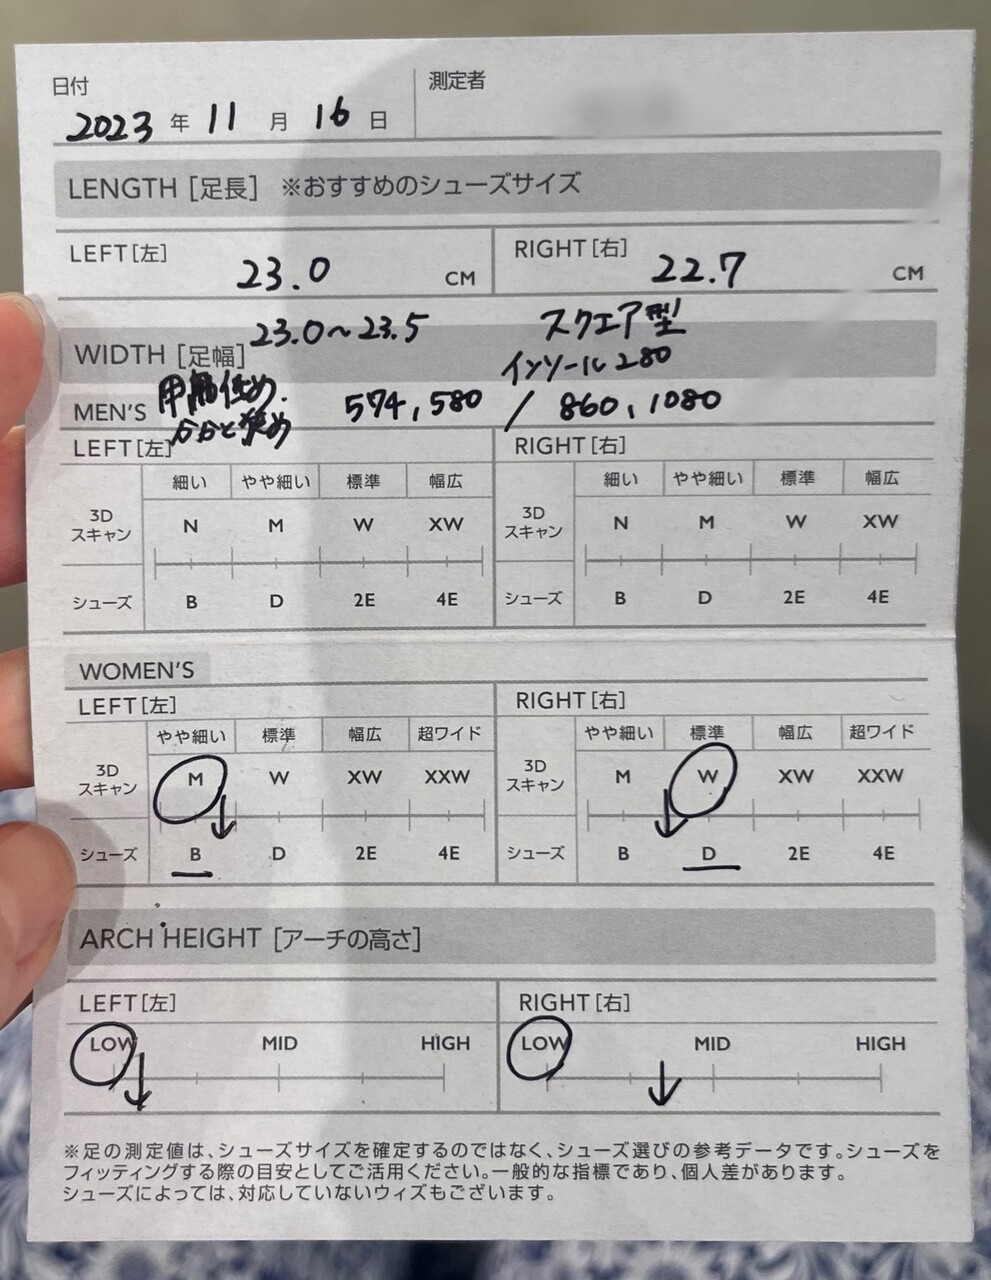 日付
測定者
2023 年 11 月 16 日
LENGTH [足長] ※おすすめのシューズサイズ
LEFT [左]
RIGHT [右]
23.0 CM
22.7 CM
23.0〜23.5
スクエア型
WIDTH [足幅]
インソール280
甲 低め.
MEN'S
574, 580 / 860, 1080
狭め
LEFT [左]
RIGHT [右]
細い やや細い 標準 幅広
細い やや細い 標準 幅広
3D
スキャン
N M W XW
3D
スキャン
N M W XW
シューズ B D 2E 4E
シューズ B D 2E 4E
WOMEN'S
LEFT [左]
RIGHT [右]
やや細い 標準 幅広 超ワイド
やや細い 標準 幅広 超ワイド
3D
スキャン
M W XW XXW
3D
スキャン
M W XW XXW
シューズ B D 2E 4E
シューズ B D 2E 4E
ARCH HEIGHT [アーチの高さ]
LEFT [左]
RIGHT [右]
LOW MID HIGH
LOW MID HIGH
※足の測定値は、シューズサイズを確定するのではなく、シューズ選びの参考データです。シューズを
フィッティングする際の目安としてご活用ください。一般的な指標であり、個人差があります。
シューズによっては、対応していないウィズもございます。